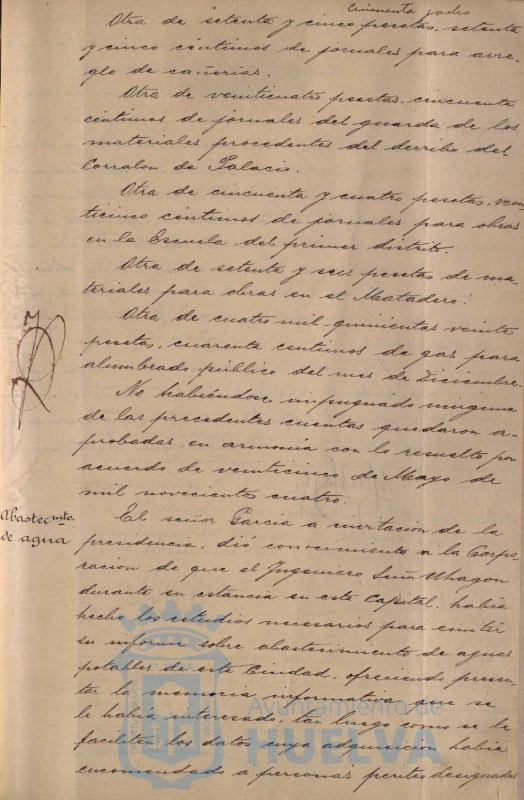 cincuenta y ocho
Otra de setenta y cinco pesetas, setenta
y cinco céntimos de jornales para arre-
glo de cañerias.
Otra de veinticuatro pesetas, cincuenta
céntimos de jornales del guarda de los
materiales procedentes del derribo del
Corralon de Palacio.
Otra de cincuenta y cuatro pesetas, vein-
ticinco céntimos de jornales para obras
en la Escuela del primer distrito.
Otra de setenta y seis pesetas de ma-
teriales para obras en el Matadero.
Otra de cuatro mil quinientas veinte
pesetas, cuarenta centimos de gas para
alumbrado público del mes de Diciembre.
No habiéndose impugnado ninguna
de las precedentes cuentas quedaron a-
probadas, en armonía con lo resuelto por
acuerdo de veinticinco de Mayo de
mil novecientos cuatro.
Abastecmto.
de agua
El señor Garcia a invitacion de la
presidencia, dió conocimiento a la Corpo-
racion de que el Ingeniero Señor Uhagon
durante su estancia en esta Capital, habia
hecho los estudios necesarios para emitir
su informe sobre abastecimiento de aguas
potables de esta Ciudad, ofreciendo presen-
tar la memoria informativa que se
le habia interesado, tan luego como se le
faciliten los datos cuya adquisicion habia
encomendado a personas peritas designadas
Ayuntamiento de
HUELVA